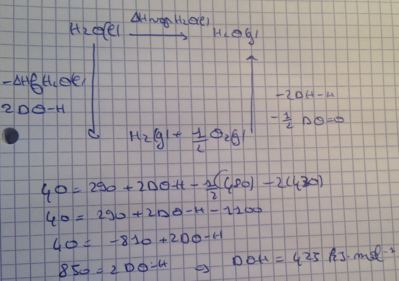 H2O(l) ΔHvap H2O(l) H2O(g)
-ΔHf H2O(l)
2DO-H
-2DH-H
-1/2 DO=O
H2(g) + 1/2 O2(g)
40 = 290 + 2DO-H - 1/2(480) - 2(430)
40 = 290 + 2DO-H - 1100
40 = -810 + 2DO-H
850 = 2DO-H ⇒ DOH = 425 KJ.mol⁻¹